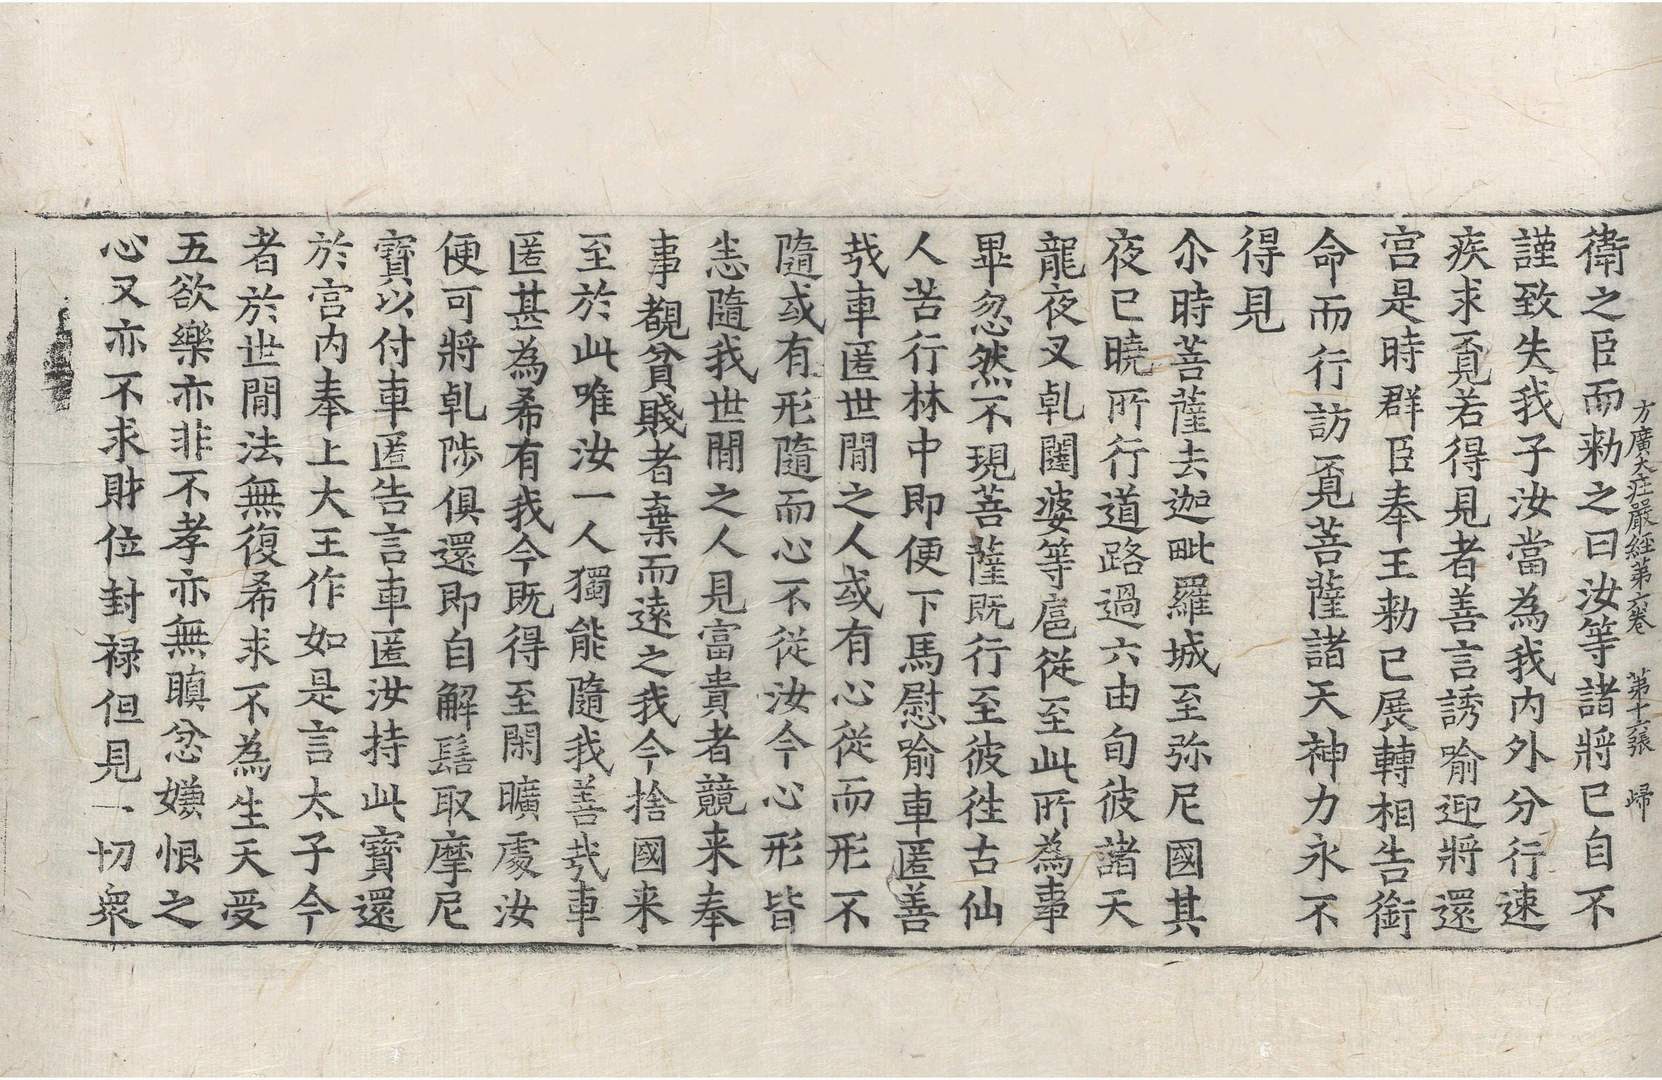 方廣大庄嚴經第六卷 第十六張 歸
衛之臣而勑之曰汝等諸將已自不
謹致失我子汝當為我內外分行速
疾求覔若得見者善言誘喻迎將還
宮是時群臣奉王勑已展轉相告銜
命而行訪覔菩薩諸天神力永不
得見
尒時菩薩去迦毗羅城至弥尼國其
夜已曉所行道路過六由旬彼諸天
龍夜叉乹闥婆等扈從至此所為事
畢忽然不現菩薩既行至彼往古仙
人苦行林中即便下馬慰喻車匿善
哉車匿世閒之人或有心從而形不
隨或有形隨而心不從汝今心形皆
悉隨我世閒之人見富貴者競来奉
事覩貧賤者棄而遠之我今捨國来
至於此唯汝一人獨能隨我善哉車
匿甚為希有我今既得至閑曠處汝
便可將乹陟俱還即自解髻取摩尼
寶以付車匿告言車匿汝持此寶還
於宮內奉上大王作如是言太子今
者於世閒法無復希求不為生天受
五欲樂亦非不孝亦無瞋忿嫌恨之
心又亦不求財位封禄但見一切衆